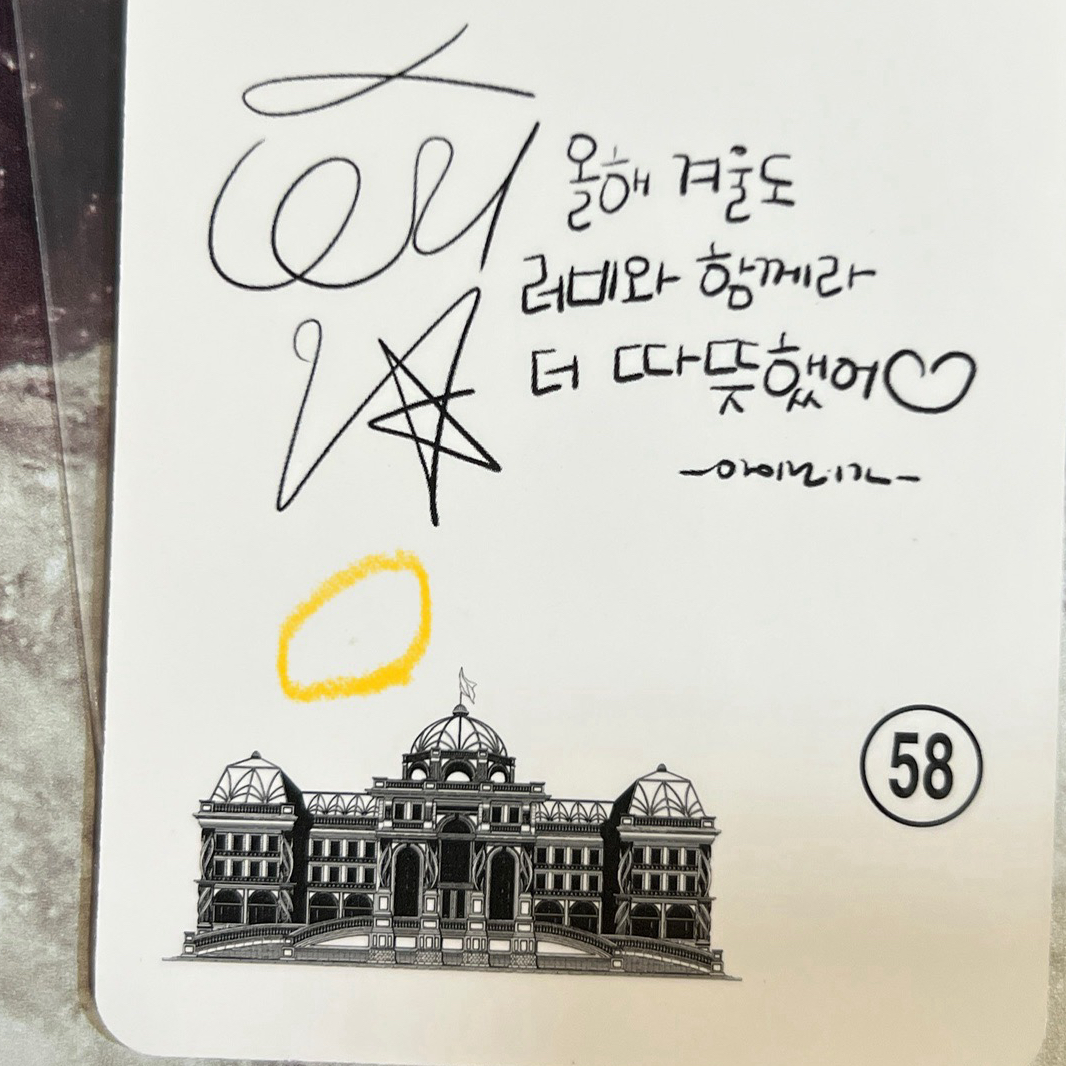 올해 겨울도
러비와 함께라
더 따뜻했어♡
58